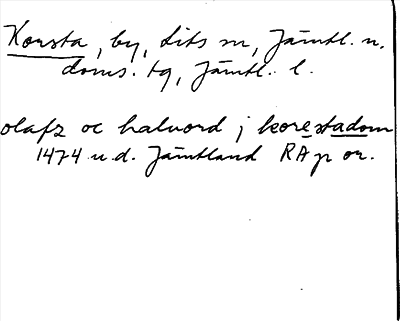 Korsta, by, Lits sn, Jämtl. n.
doms. tg, Jämtl. l.
olafz oc haluord j korestadom
1474 u.d. Jämtland RAp or.